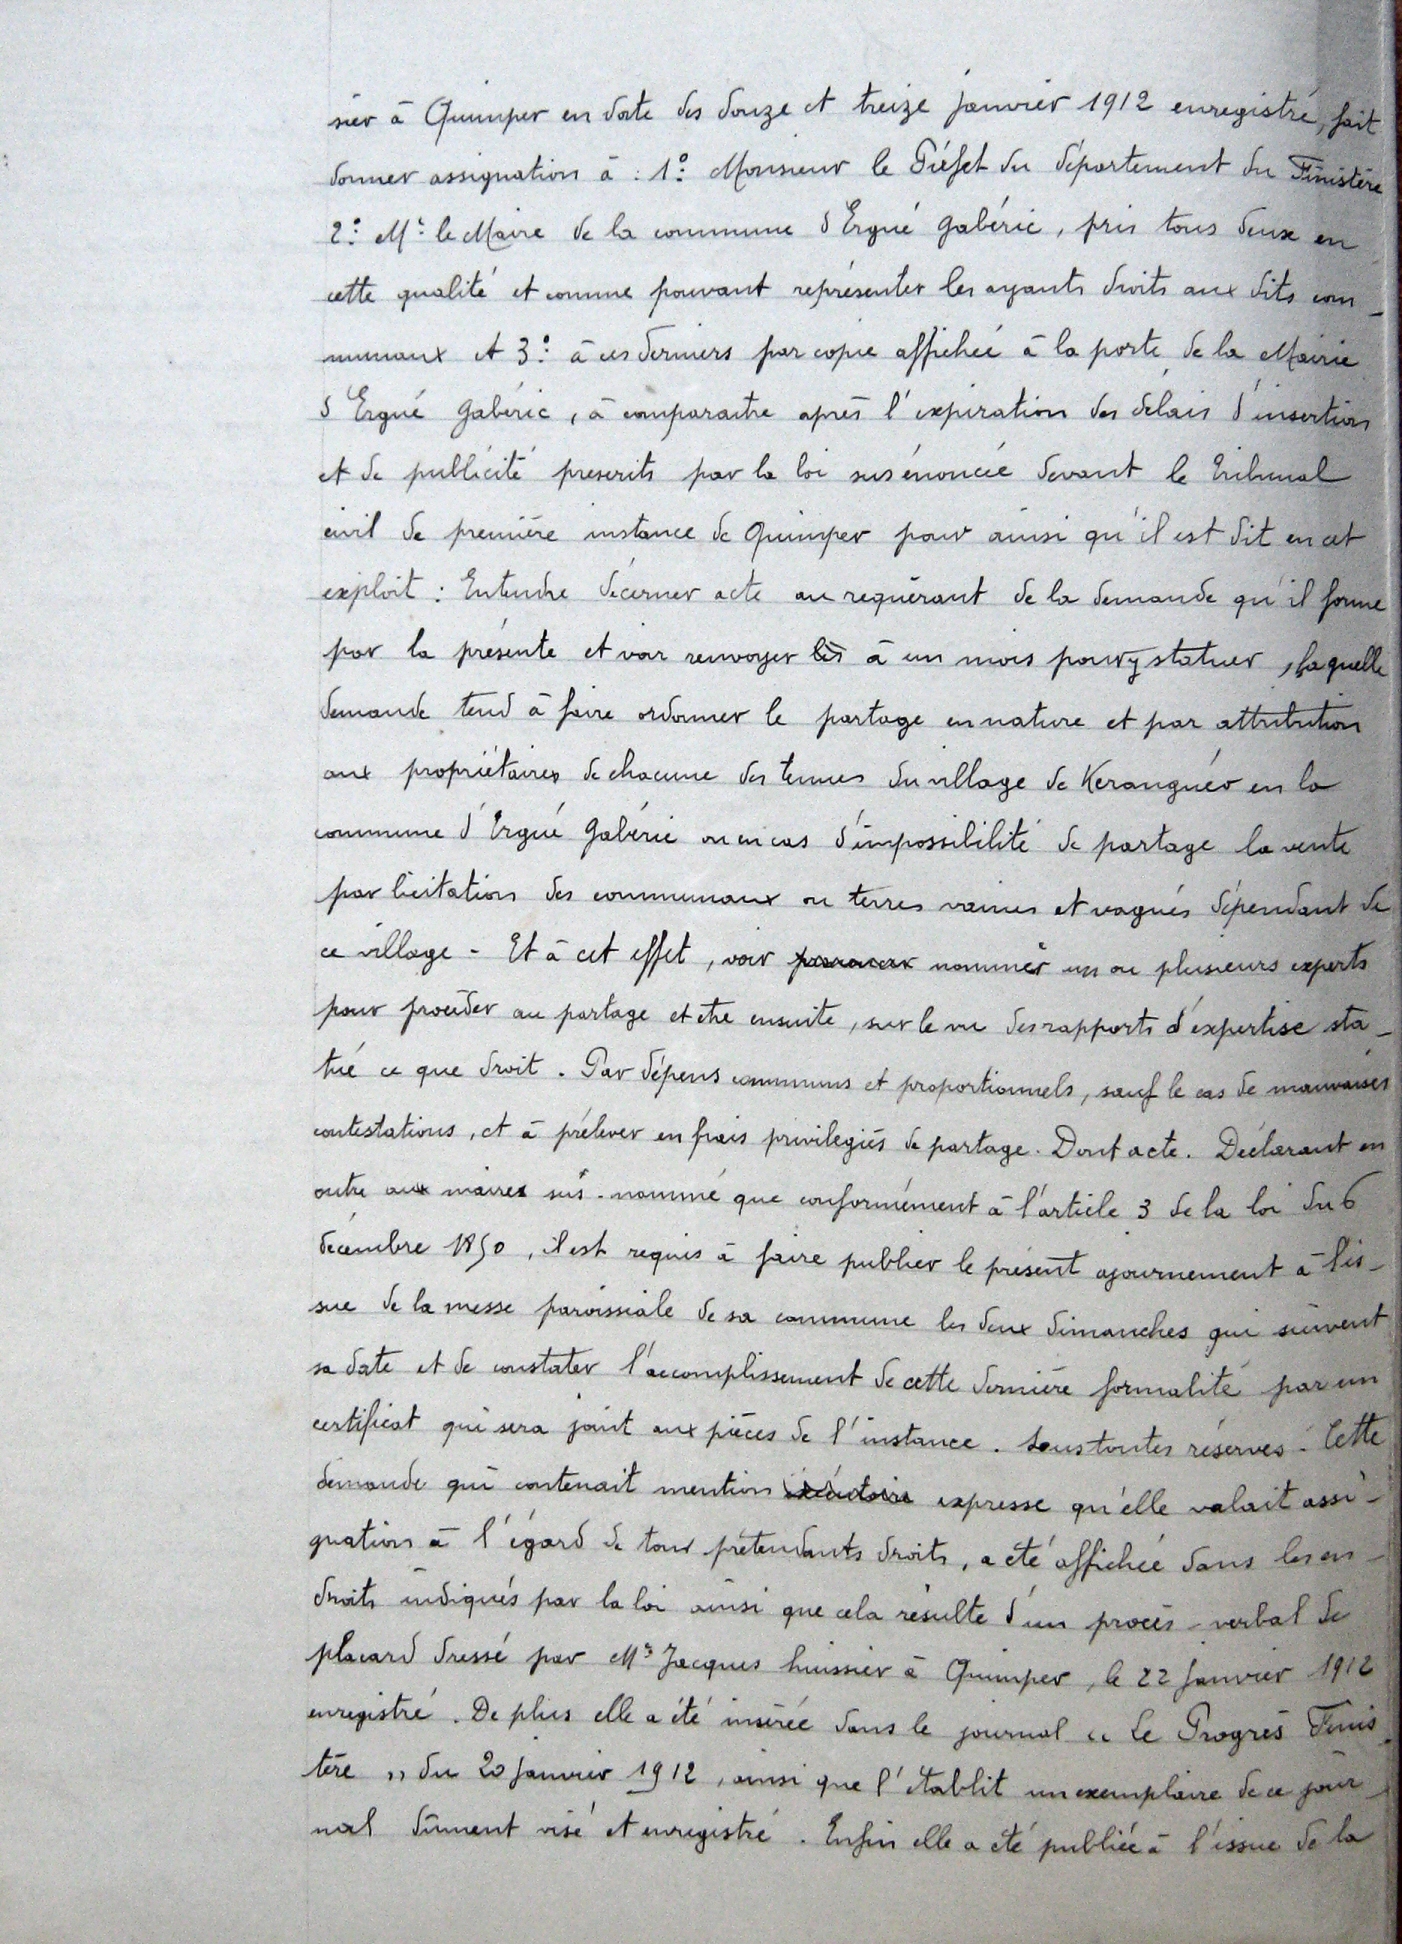 sier à Quimper en date des douze et treize janvier 1912 enregistré, fait
donner assignation à : 1º Monsieur le Préfet du département du Finistère
2º Mr le Maire de la commune d'Ergué Gabéric, pris tous deux en
cette qualité et comme pouvant représenter les ayants droits aux dits com_
munaux et 3º à ces derniers par copie affichée à la porte de la Mairie
d'Ergué Gabéric, à comparaître après l'expiration des délais d'insertion
et de publicité prescrits par la loi sus énoncée devant le Tribunal
civil de première instance de Quimper pour ainsi qu'il est dit en cet
exploit : Entendre décerner acte au requérant de la demande qu'il forme
par la présente et voir renvoyer à un mois pour y statuer, laquelle
demande tend à faire ordonner le partage en nature et par attribution
aux propriétaires de chacune des tenues du village de Keranguéo en la
commune d'Ergué Gabéric ou en cas d'impossibilité de partage la vente
par licitation des communaux ou terres vaines et vagues dépendant de
ce village - Et à cet effet, voir nommer un ou plusieurs experts
pour procéder au partage et être ensuite, sur le vu des rapports d'expertise sta_
tué ce que droit. Par dépens communs et proportionnels, sauf le cas de mauvaises
contestations, et à prélever en frais privilégiés de partage. Dont acte. Déclarant en
outre aux maires sus-nommé que conformément à l'article 3 de la loi du 6
décembre 1850, il est requis à faire publier le présent ajournement à l'is_
sue de la messe paroissiale de sa commune les deux dimanches qui suivent
sa date et de constater l'accomplissement de cette dernière formalité par un
certificat qui sera joint aux pièces de l'instance. Sous toutes réserves. Cette
demande qui contenait mention expresse qu'elle valait assi_
gnation à l'égard de tous prétendants droits, a été affichée dans les en_
droits indiqués par la loi ainsi que cela résulte d'un procès-verbal de
placard dressé par Me Jacques huissier à Quimper, le 22 janvier 1912
enregistré. De plus elle a été insérée dans le journal « Le Progrès Finis_
tère » du 20 janvier 1912, ainsi que l'établit un exemplaire de ce jour_
nal dûment visé et enregistré. Enfin elle a été publiée à l'issue de la